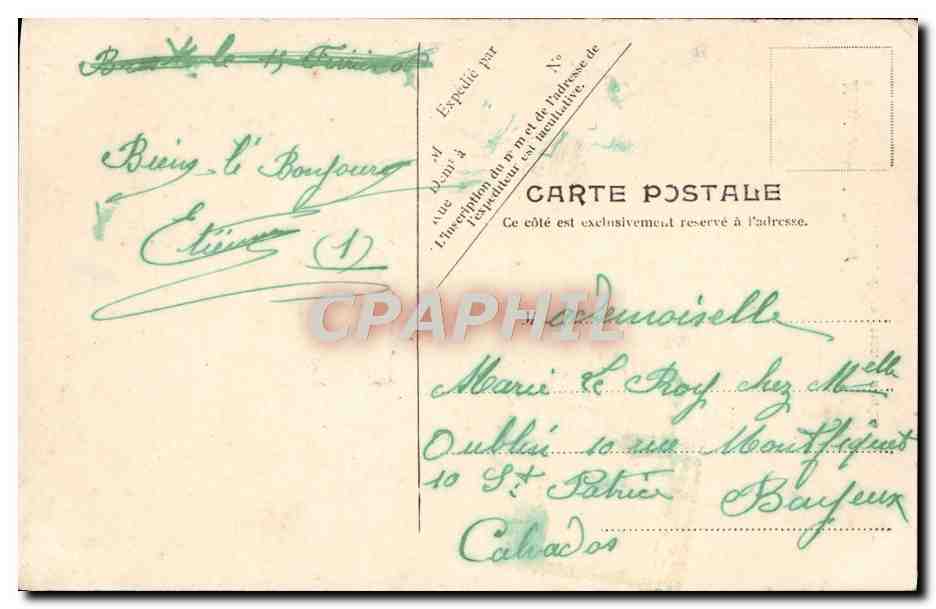 le 15
Biens le Bonjour
Etienne
(1)
Expédié par
M
Dem^t à
rue
N°
L'inscription du nom et de l'adresse de
l'expéditeur est facultative.
CARTE POSTALE
Ce côté est exclusivement reservé à l'adresse.
Mademoiselle
Marie Le Roy chez Melle
Oublin 10 rue Montfiquet
10 St Patrice Bayeux
Calvados
CPAPHIL